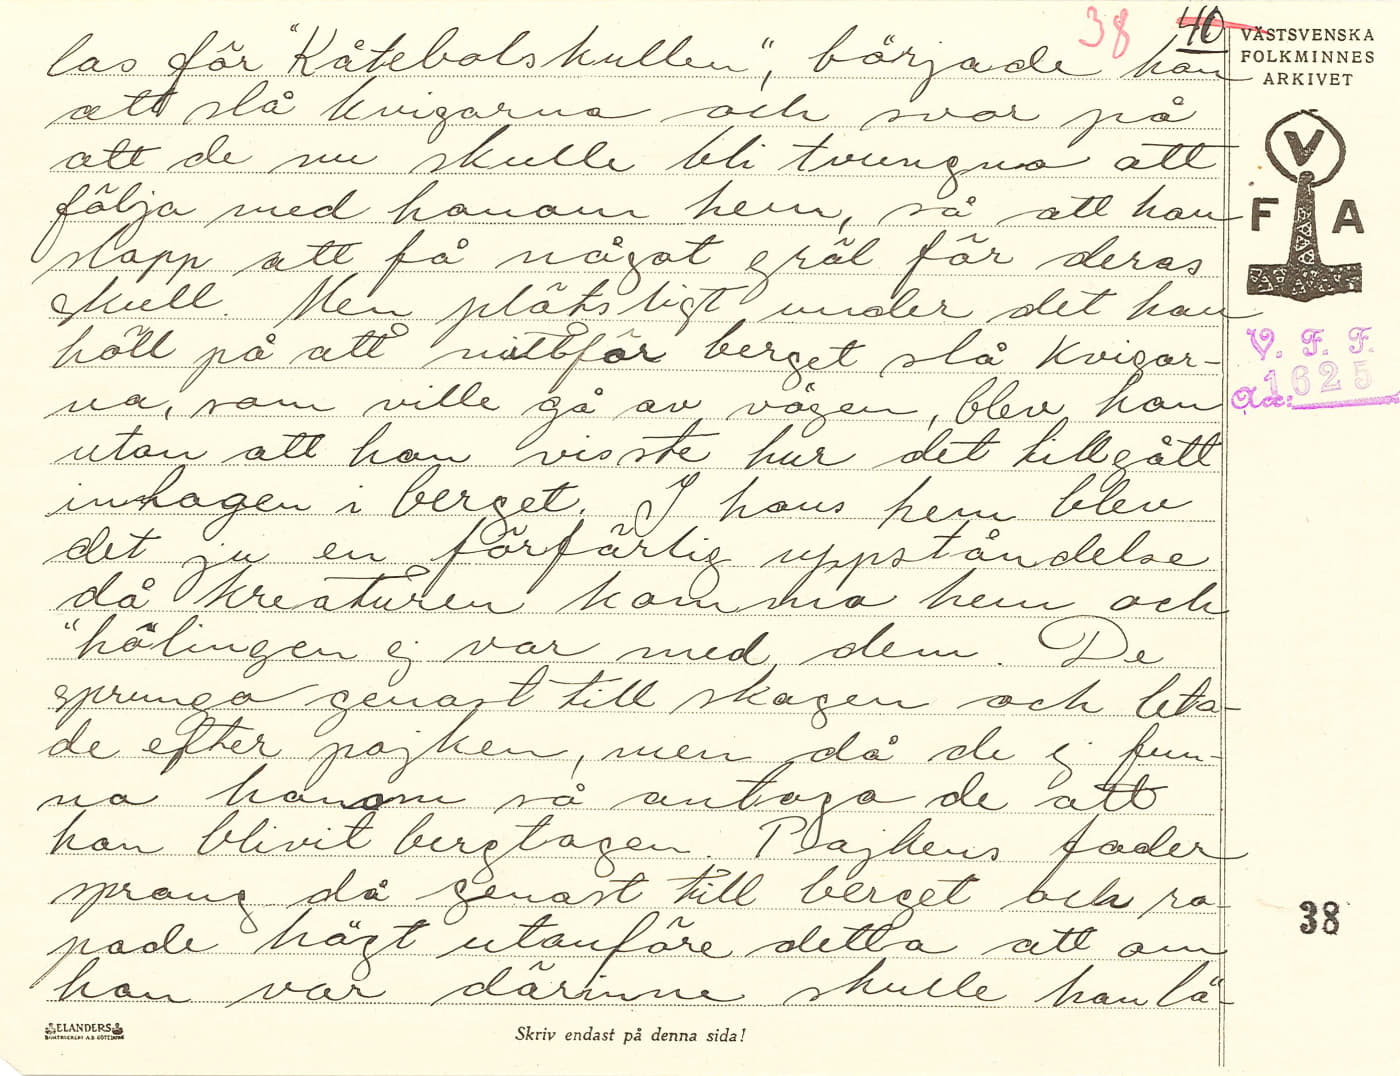 38 40
VÄSTSVENSKA
FOLKMINNES
ARKIVET
V
F A
V. F. F.
Acc: 1625
las för "Kåtebolskullen", började han
att slå kvigarna och svor på
att de nu skulle bli tvungna att
följa med honom hem, så att han
slapp att få något gräl för deras
skull. Men plötsligt under det han
höll på att mittför berget slå kvigar-
na, som ville gå av vägen, blev han
utan att han visste hur det tillgått
inhagen i berget. I hans hem blev
det ju en förfärlig uppståndelse
då kreaturen komma hem och
"hölingen ej var med dem. De
sprungo genast till skogen och leta-
de efter pojken, men då de ej fun-
no honom så antogo de att
han blivit bergtagen. Pojkens fader
sprang då genast till berget och ro-
pade högt utanföre detta att om
han var därinne skulle han lä-
38
ELANDERS
BOKTRYCKERI A.B. GÖTEBORG
Skriv endast på denna sida!